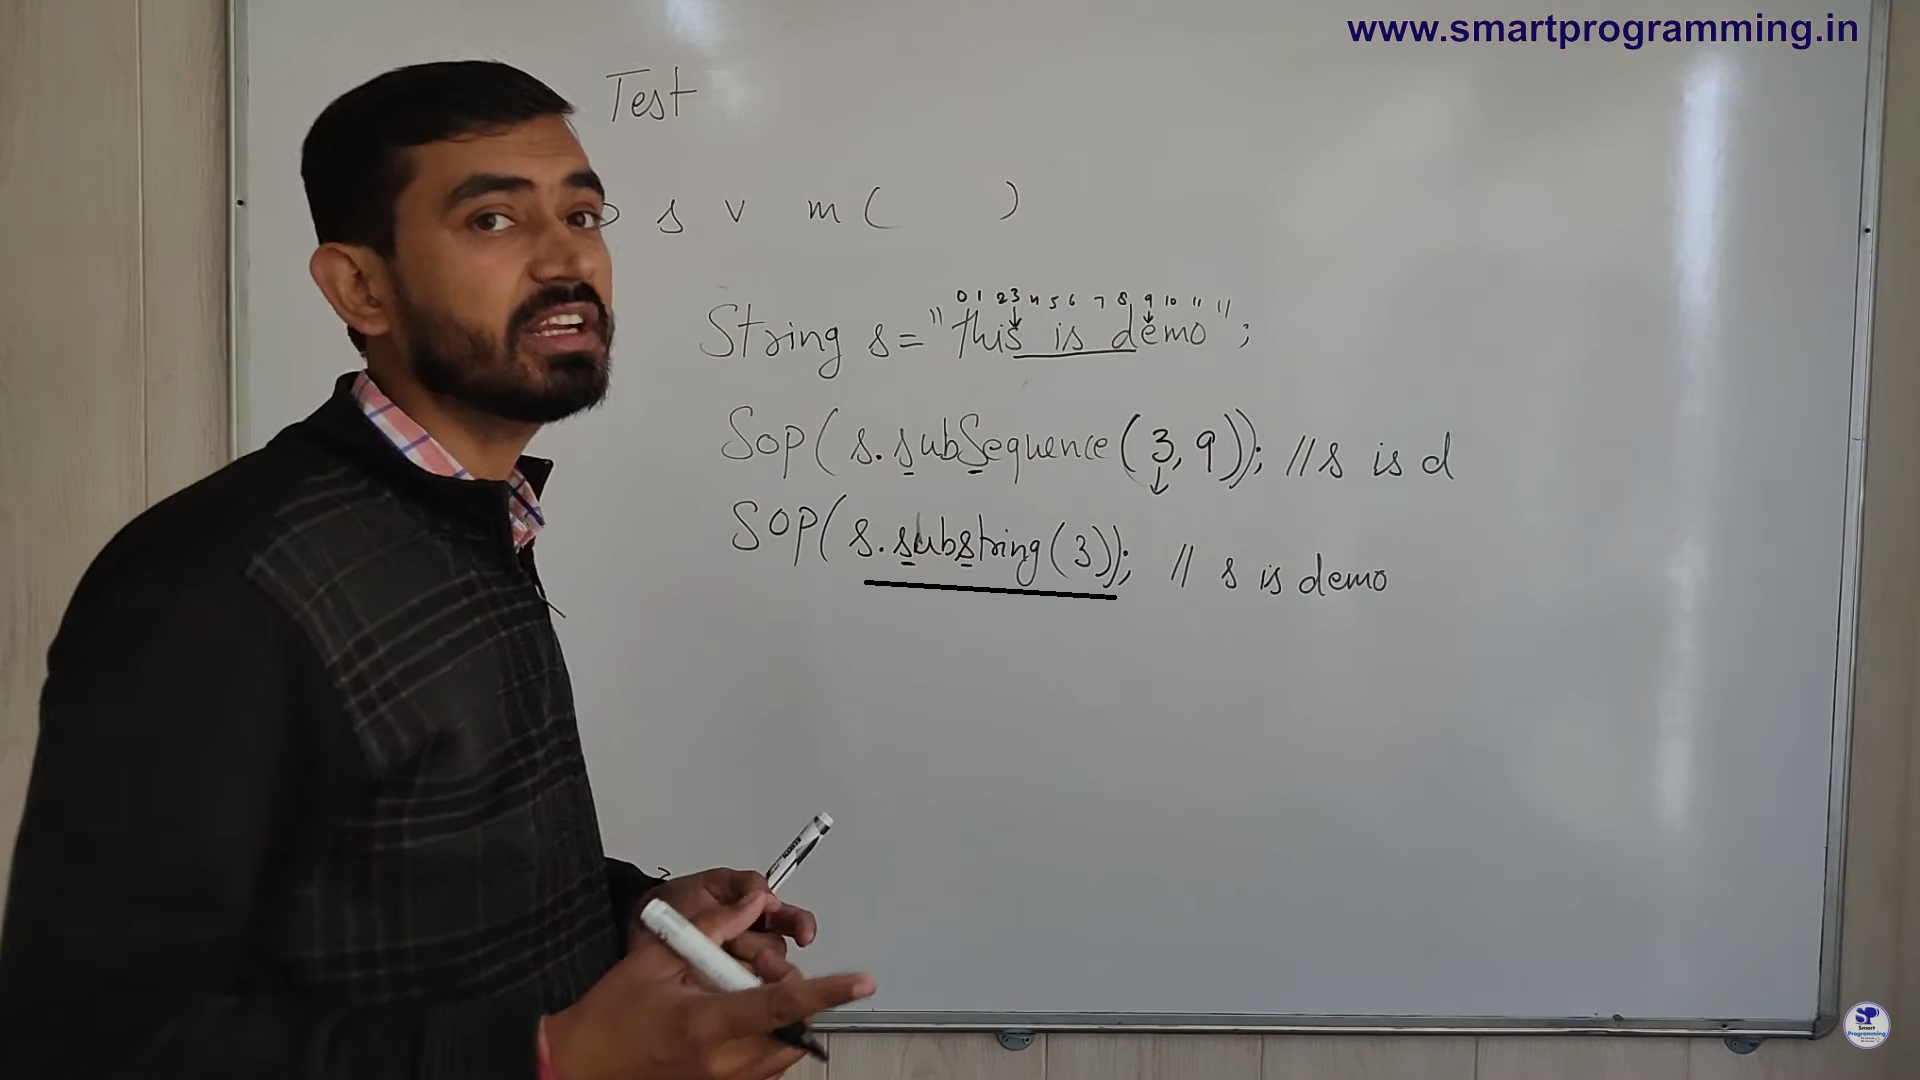 www.smartprogramming.in
Test
s v m ( )
0 1 2 3 4 5 6 7 8 9 10 11
String s = "this is demo";
Sop( s.subSequence(3,9)); //s is d
SOP( s.substring(3)); // s is demo
SP
Smart
Programming